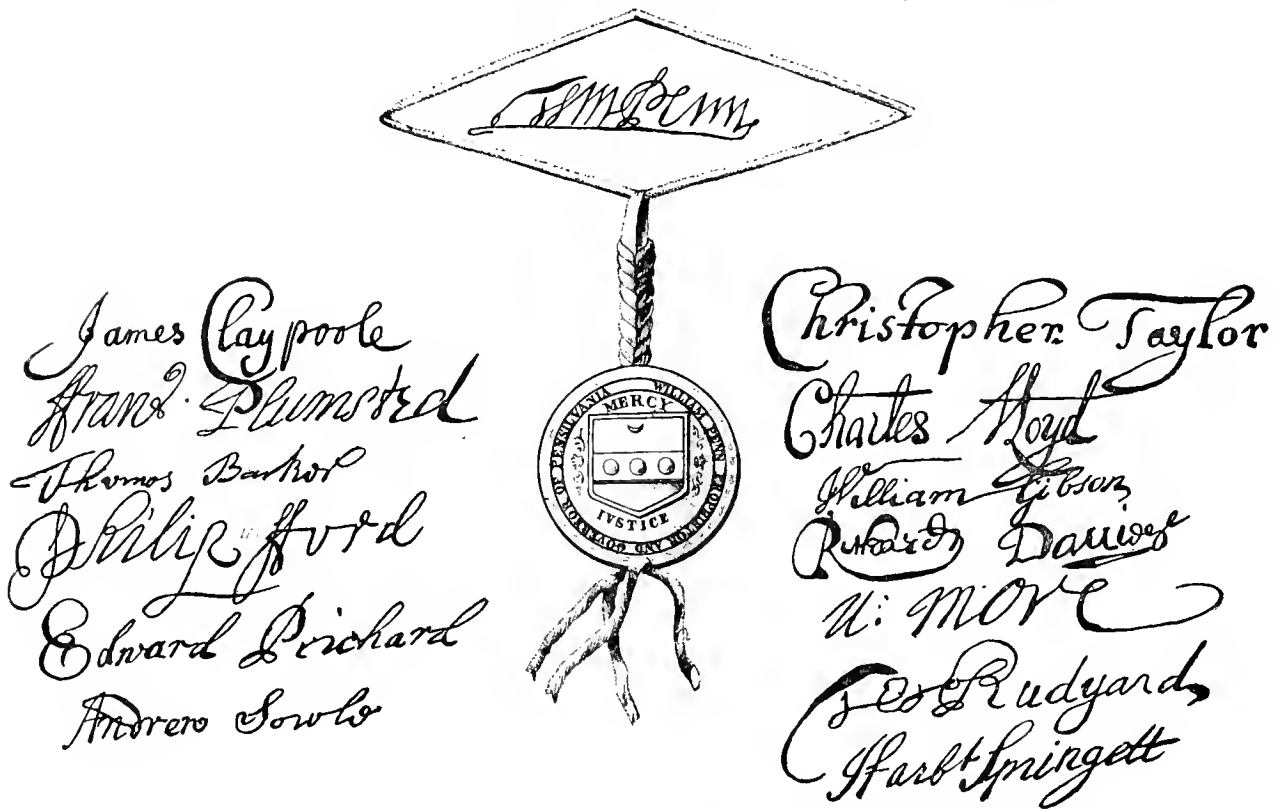 Wm Penn
James Claypoole
ffranc Plumsted
Thomas Barker
Philip fford
Edward Prichard
Andrew Sowle
WILLIAM PENN PROPRIETOR AND GOVERNOR OF PENSILVANIA
MERCY
IVSTICE
Christopher Taylor
Charles Lloyd
William Gibson
Richard Davies
N: MORE
Tho Rudyard
Harbt Springett